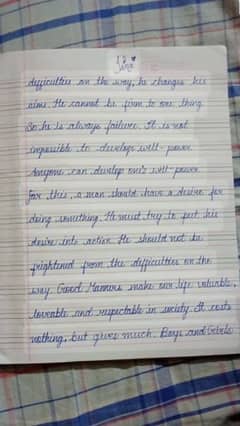 difficulties on the way, he changes his
aim. He cannot be firm to one thing
So he is always failure. It is not
impossible to develop will-power
Anyone can develop one's will-power
For this, a man should have a desire for
doing something. He must try to put his
desire into action. He should not be
frightened from the difficulties on the
way. Good Manners make our life valuable,
loveable and respectable in society. It costs
nothing, but gives much. Boys and Girls